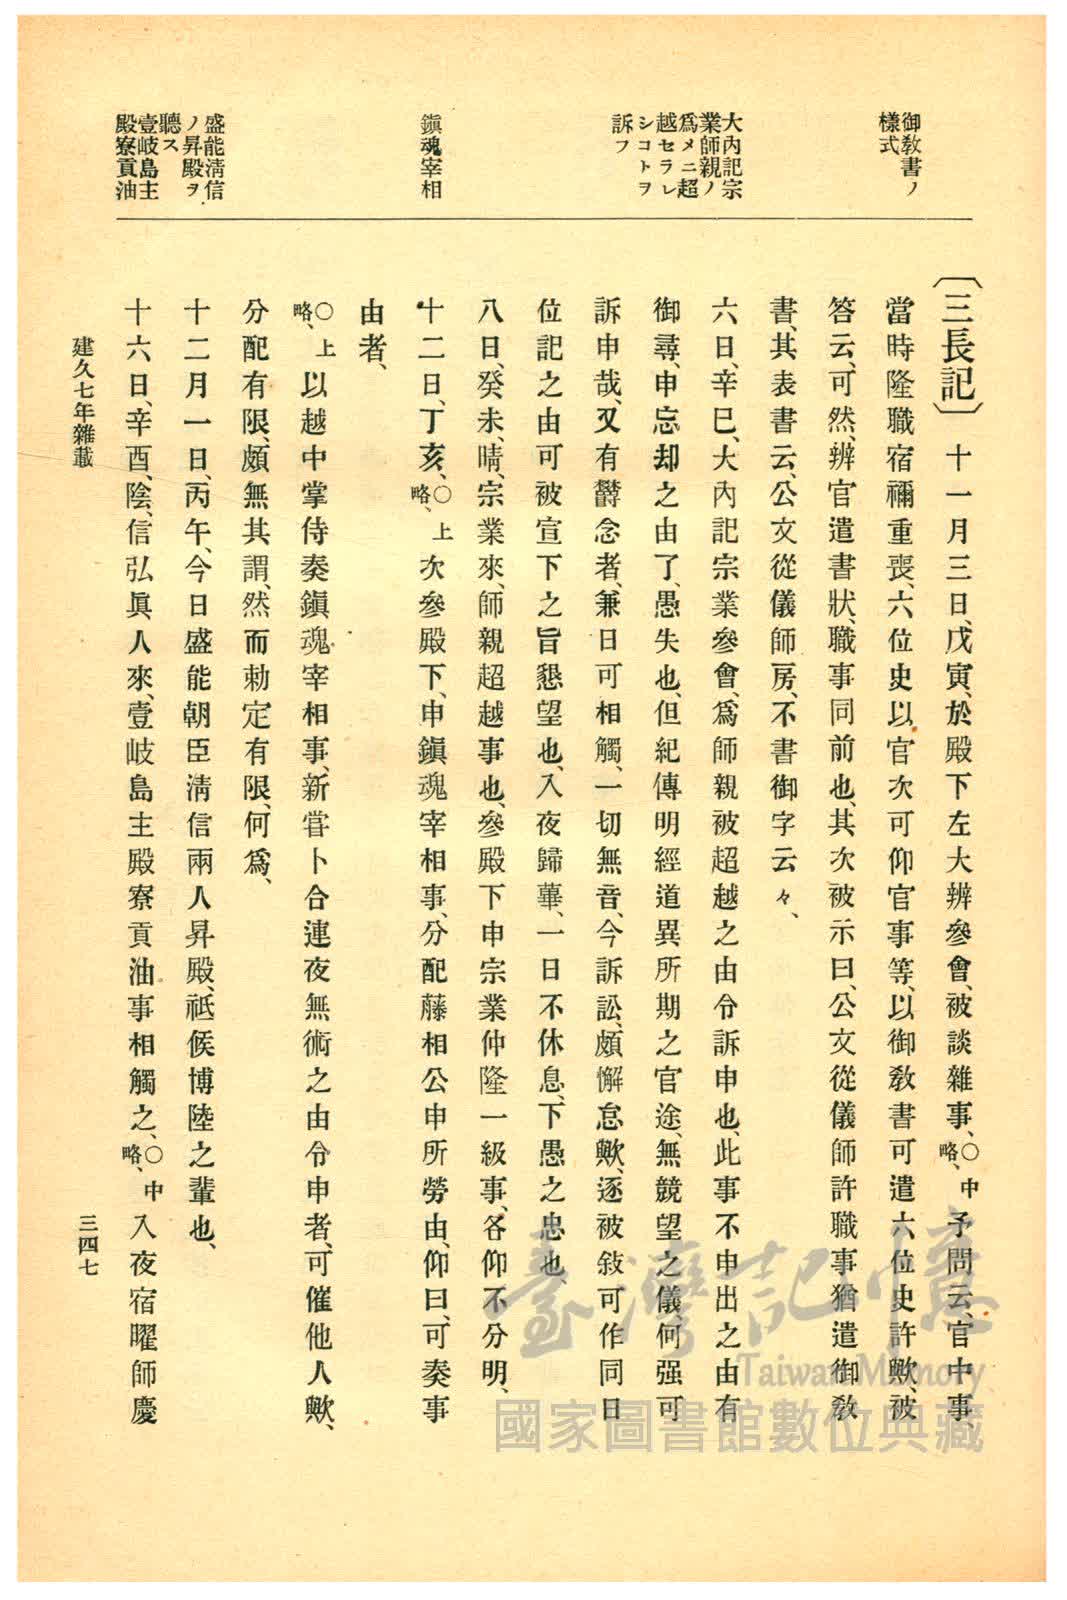 御敎書ノ
樣式
大內記宗
業師親ノ
爲メニ超
越セラレ
シコトヲ
訴フ
鎭魂宰相
盛能淸信
ノ昇殿ヲ
聽ス
壹岐島主
殿寮貢油
〔三長記〕十一月三日、戊寅、於殿下左大辨參會、被談雜事、○中略、予問云、官中事、
當時隆職宿禰重喪、六位史以官次可仰官事等、以御敎書可遣六位史許歟、被
答云、可然、辨官遣書狀、職事同前也、其次被示曰、公文從儀師許職事猶遣御敎
書、其表書云、公文從儀師房、不書御字云々、
六日、辛巳、大內記宗業參會、爲師親被超越之由令訴申也、此事不申出之由有
御尋、申忘却之由了、愚失也、但紀傳明經道異所期之官途、無競望之儀何强可
訴申哉、又有欝念者、兼日可相觸、一切無音、今訴訟、頗懈怠歟、逐被敍可作同日
位記之由可被宣下之旨懇望也、入夜歸華、一日不休息、下愚之忠也、
八日、癸未、晴、宗業來、師親超越事也、參殿下申宗業仲隆一級事、各仰不分明、
十二日、丁亥、○上略、次參殿下、申鎭魂宰相事、分配藤相公申所勞由、仰曰、可奏事
由者、
○上略、以越中掌侍奏鎭魂宰相事、新嘗卜合連夜無術之由令申者、可催他人歟、
分配有限、頗無其謂、然而勅定有限、何爲、
十二月一日、丙午、今日盛能朝臣淸信兩人昇殿、祗候博陸之輩也、
十六日、辛酉、陰、信弘眞人來、壹岐島主殿寮貢油事相觸之、○中略、入夜宿曜師慶
建久七年雜載
三四七
臺灣記憶
Taiwan Memory
國家圖書館數位典藏